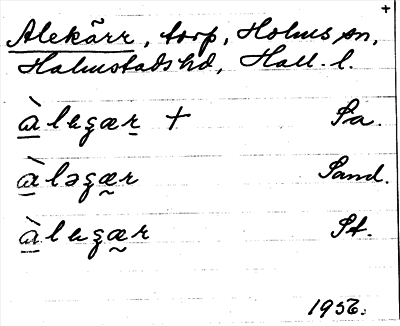 +
Alekärr, torp, Holms sn,
Halmstads hd, Hall. l.
àlegær + Sa.
àləgær Sand.
àlegær St.
1956.